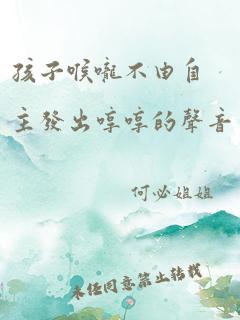 孩子喉嚨不由自
主發出哼哼的聲音
何必姐姐
未经同意禁止转载